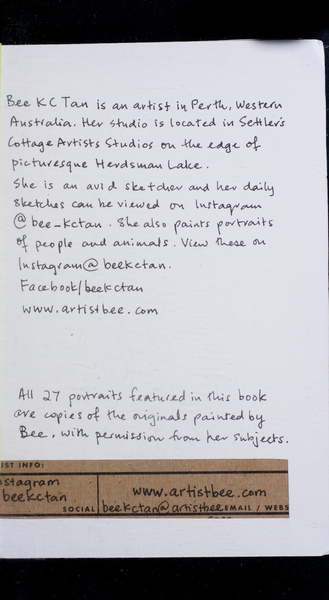 Bee KC Tan is an artist in Perth, Western
Australia. Her studio is located in Settler's
Cottage Artists Studios on the edge of
picturesque Herdsman Lake.
She is an avid sketcher and her daily
sketches can be viewed on Instagram
@bee_kctan. She also paints portraits
of people and animals. View these on
Instagram@beekctan.
Facebook/beekctan
www.artistbee.com
All 27 portraits featured in this book
are copies of the originals painted by
Bee, with permission from her subjects.
IST INFO:
nstagram
beekctan
SOCIAL
www.artistbee.com
beekctan@artistbee
EMAIL / WEBS